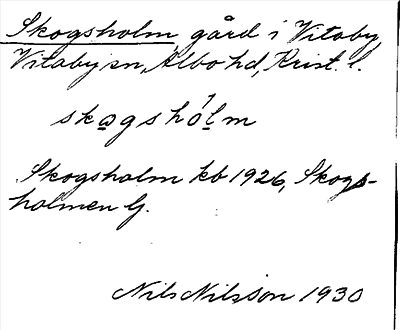 Skogsholm gård i Vitaby,
Vitaby sn, Albo hd, Krist. l.
skogshólm
Skogsholm kb 1926, Skogs-
holmen G.
Nils Nilsson 1930